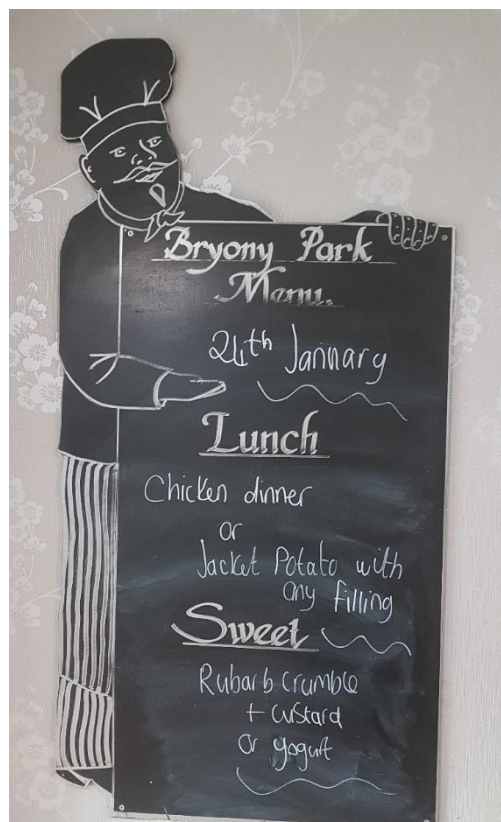 Bryony Park
Menu.
24th January
Lunch
Chicken dinner
or
Jacket Potato with
any filling
Sweet
Rubarb crumble
+ custard
or yogurt